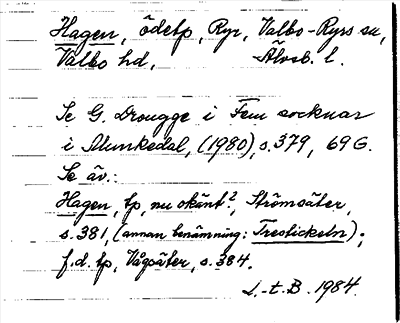 Hagen, ödetp, Ryr, Valbo-Ryrs sn,
Valbo hd, Älvsb. l.
Se G. Drougge i Fem socknar
i Munkedal, (1980), s. 379, 696.
Se äv.:
Hagen, tp, nu okänt?, Strömsäter,
s. 381, (annan benämning: Trestickeln);
f.d. tp, Vågsäter, s. 384.
L.-t. B. 1984.